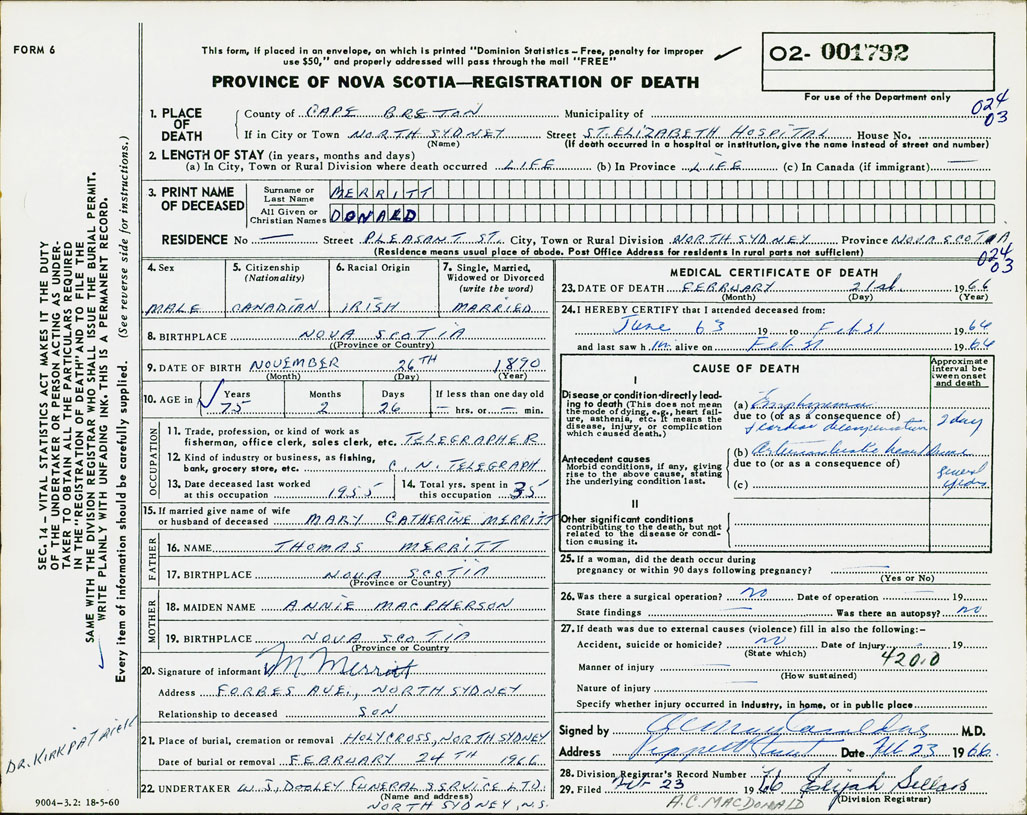 FORM 6
This form, if placed in an envelope, on which is printed "Dominion Statistics – Free, penalty for improper
use $50," and properly addressed will pass through the mail "FREE"
PROVINCE OF NOVA SCOTIA—REGISTRATION OF DEATH
02- 001792
For use of the Department only
024
03
SEC. 14 – VITAL STATISTICS ACT MAKES IT THE DUTY
OF THE UNDERTAKER OR PERSON ACTING AS UNDER-
TAKER TO OBTAIN ALL THE PARTICULARS REQUIRED
IN THE "REGISTRATION OF DEATH" AND TO FILE THE
SAME WITH THE DIVISION REGISTRAR WHO SHALL ISSUE THE BURIAL PERMIT.
WRITE PLAINLY WITH UNFADING INK. THIS IS A PERMANENT RECORD.
Every item of information should be carefully supplied. (See reverse side for instructions.)
1. PLACE OF DEATH
County of CAPE BRETON Municipality of
If in City or Town NORTH SYDNEY Street ST. ELIZABETH HOSPITAL House No.
(Name) (If death occurred in a hospital or institution, give the name instead of street and number)
2. LENGTH OF STAY (in years, months and days)
(a) In City, Town or Rural Division where death occurred LIFE (b) In Province LIFE (c) In Canada (if immigrant) —
3. PRINT NAME OF DECEASED
Surname or Last Name MERRITT
All Given or Christian Names DONALD
RESIDENCE No — Street PLEASANT ST. City, Town or Rural Division NORTH SYDNEY Province NOVA SCOTIA
(Residence means usual place of abode. Post Office Address for residents in rural parts not sufficient)
024
03
4. Sex
MALE
5. Citizenship (Nationality)
CANADIAN
6. Racial Origin
IRISH
7. Single, Married, Widowed or Divorced (write the word)
MARRIED
8. BIRTHPLACE NOVA SCOTIA
(Province or Country)
9. DATE OF BIRTH NOVEMBER 26TH 1890
(Month) (Day) (Year)
10. AGE in Years Months Days If less than one day old
75 2 26 — hrs. or — min.
OCCUPATION
11. Trade, profession, or kind of work as
fisherman, office clerk, sales clerk, etc. TELEGRAPHER
12. Kind of industry or business, as fishing,
bank, grocery store, etc. C. N. TELEGRAPH
13. Date deceased last worked at this occupation 1955
14. Total yrs. spent in this occupation 35
15. If married give name of wife
or husband of deceased MARY CATHERINE MERRITT
FATHER
16. NAME THOMAS MERRITT
17. BIRTHPLACE NOVA SCOTIA
(Province or Country)
MOTHER
18. MAIDEN NAME ANNIE MACPHERSON
19. BIRTHPLACE NOVA SCOTIA
(Province or Country)
20. Signature of informant M. Merritt
Address FORBES AVE., NORTH SYDNEY
Relationship to deceased SON
21. Place of burial, cremation or removal HOLYCROSS, NORTH SYDNEY
Date of burial or removal FEBRUARY 24TH 1966
22. UNDERTAKER W. J. DOOLEY FUNERAL SERVICE LTD.
(Name and address)
NORTH SYDNEY, N.S.
DR. KIRKPATRICK
9004-3.2: 18-5-60
MEDICAL CERTIFICATE OF DEATH
23. DATE OF DEATH FEBRUARY 21st. 1966
(Month) (Day) (Year)
24. I HEREBY CERTIFY that I attended deceased from:
June 63 19 to Feb 21 1966
and last saw him alive on Feb 21 1966
CAUSE OF DEATH
Approximate interval between onset and death
I
Disease or condition directly lead-
ing to death (This does not mean
the mode of dying, e.g., heart fail-
ure, asthenia, etc. It means the
disease, injury, or complication
which caused death.)
(a)
due to (or as a consequence of)
cardiac decompensation 2 day
Antecedent causes
Morbid conditions, if any, giving
rise to the above cause, stating
the underlying condition last.
(b) heart disease
due to (or as a consequence of) several years
(c)
II
Other significant conditions
contributing to the death, but not
related to the disease or condi-
tion causing it.
25. If a woman, did the death occur during
pregnancy or within 90 days following pregnancy? —
(Yes or No)
26. Was there a surgical operation? no Date of operation — 19
State findings — Was there an autopsy? no
27. If death was due to external causes (violence) fill in also the following:–
Accident, suicide or homicide? no Date of injury 19
(State which)
4200
Manner of injury —
(How sustained)
Nature of injury —
Specify whether injury occurred in industry, in home, or in public place
Signed by M.D.
Address Date Feb 23 1966
28. Division Registrar's Record Number 76
29. Filed Feb 23 1966 Elijah Sellars
(Division Registrar)
A.C. MACDONALD